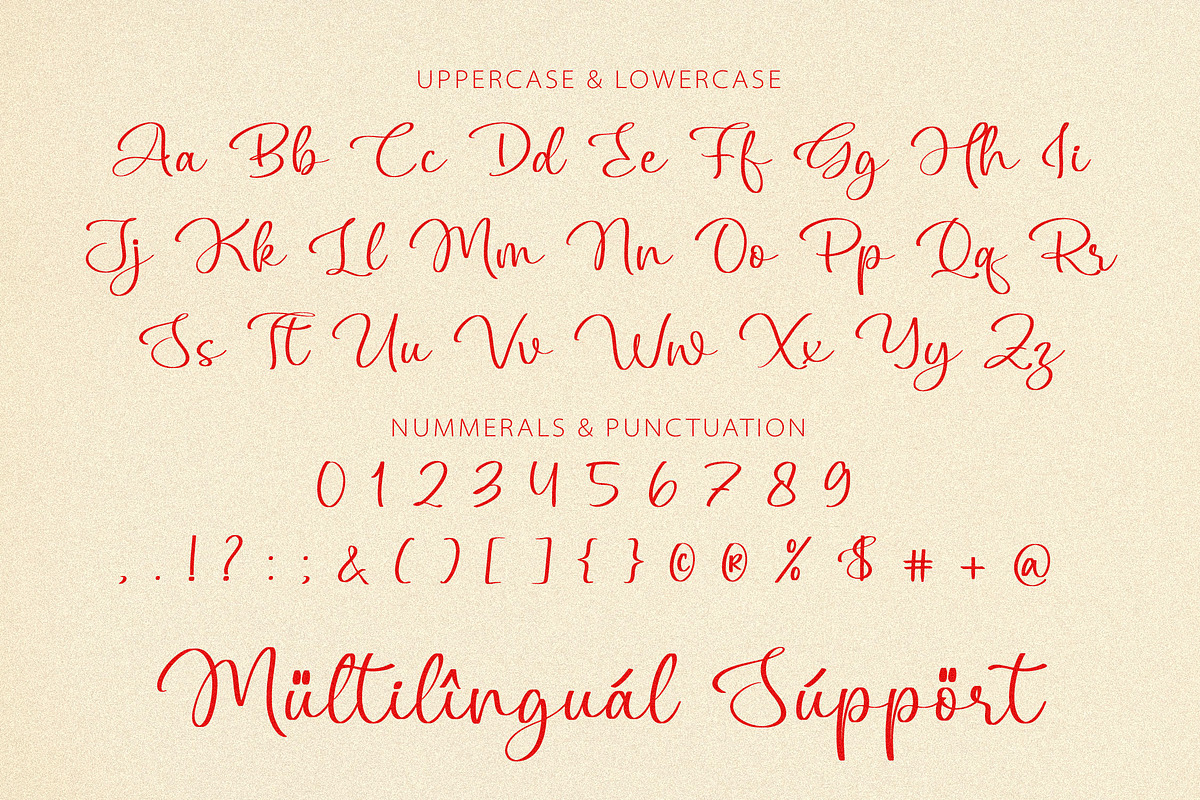 UPPERCASE & LOWERCASE
Aa Bb Cc Dd Ee Ff Gg Hh Ii
Jj Kk Ll Mm Nn Oo Pp Qq Rr
Ss Tt Uu Vv Ww Xx Yy Zz
NUMMERALS & PUNCTUATION
0 1 2 3 4 5 6 7 8 9
, . ! ? : ; & ( ) [ ] { } © ® % $ # + @
Mültilînguál Súppört